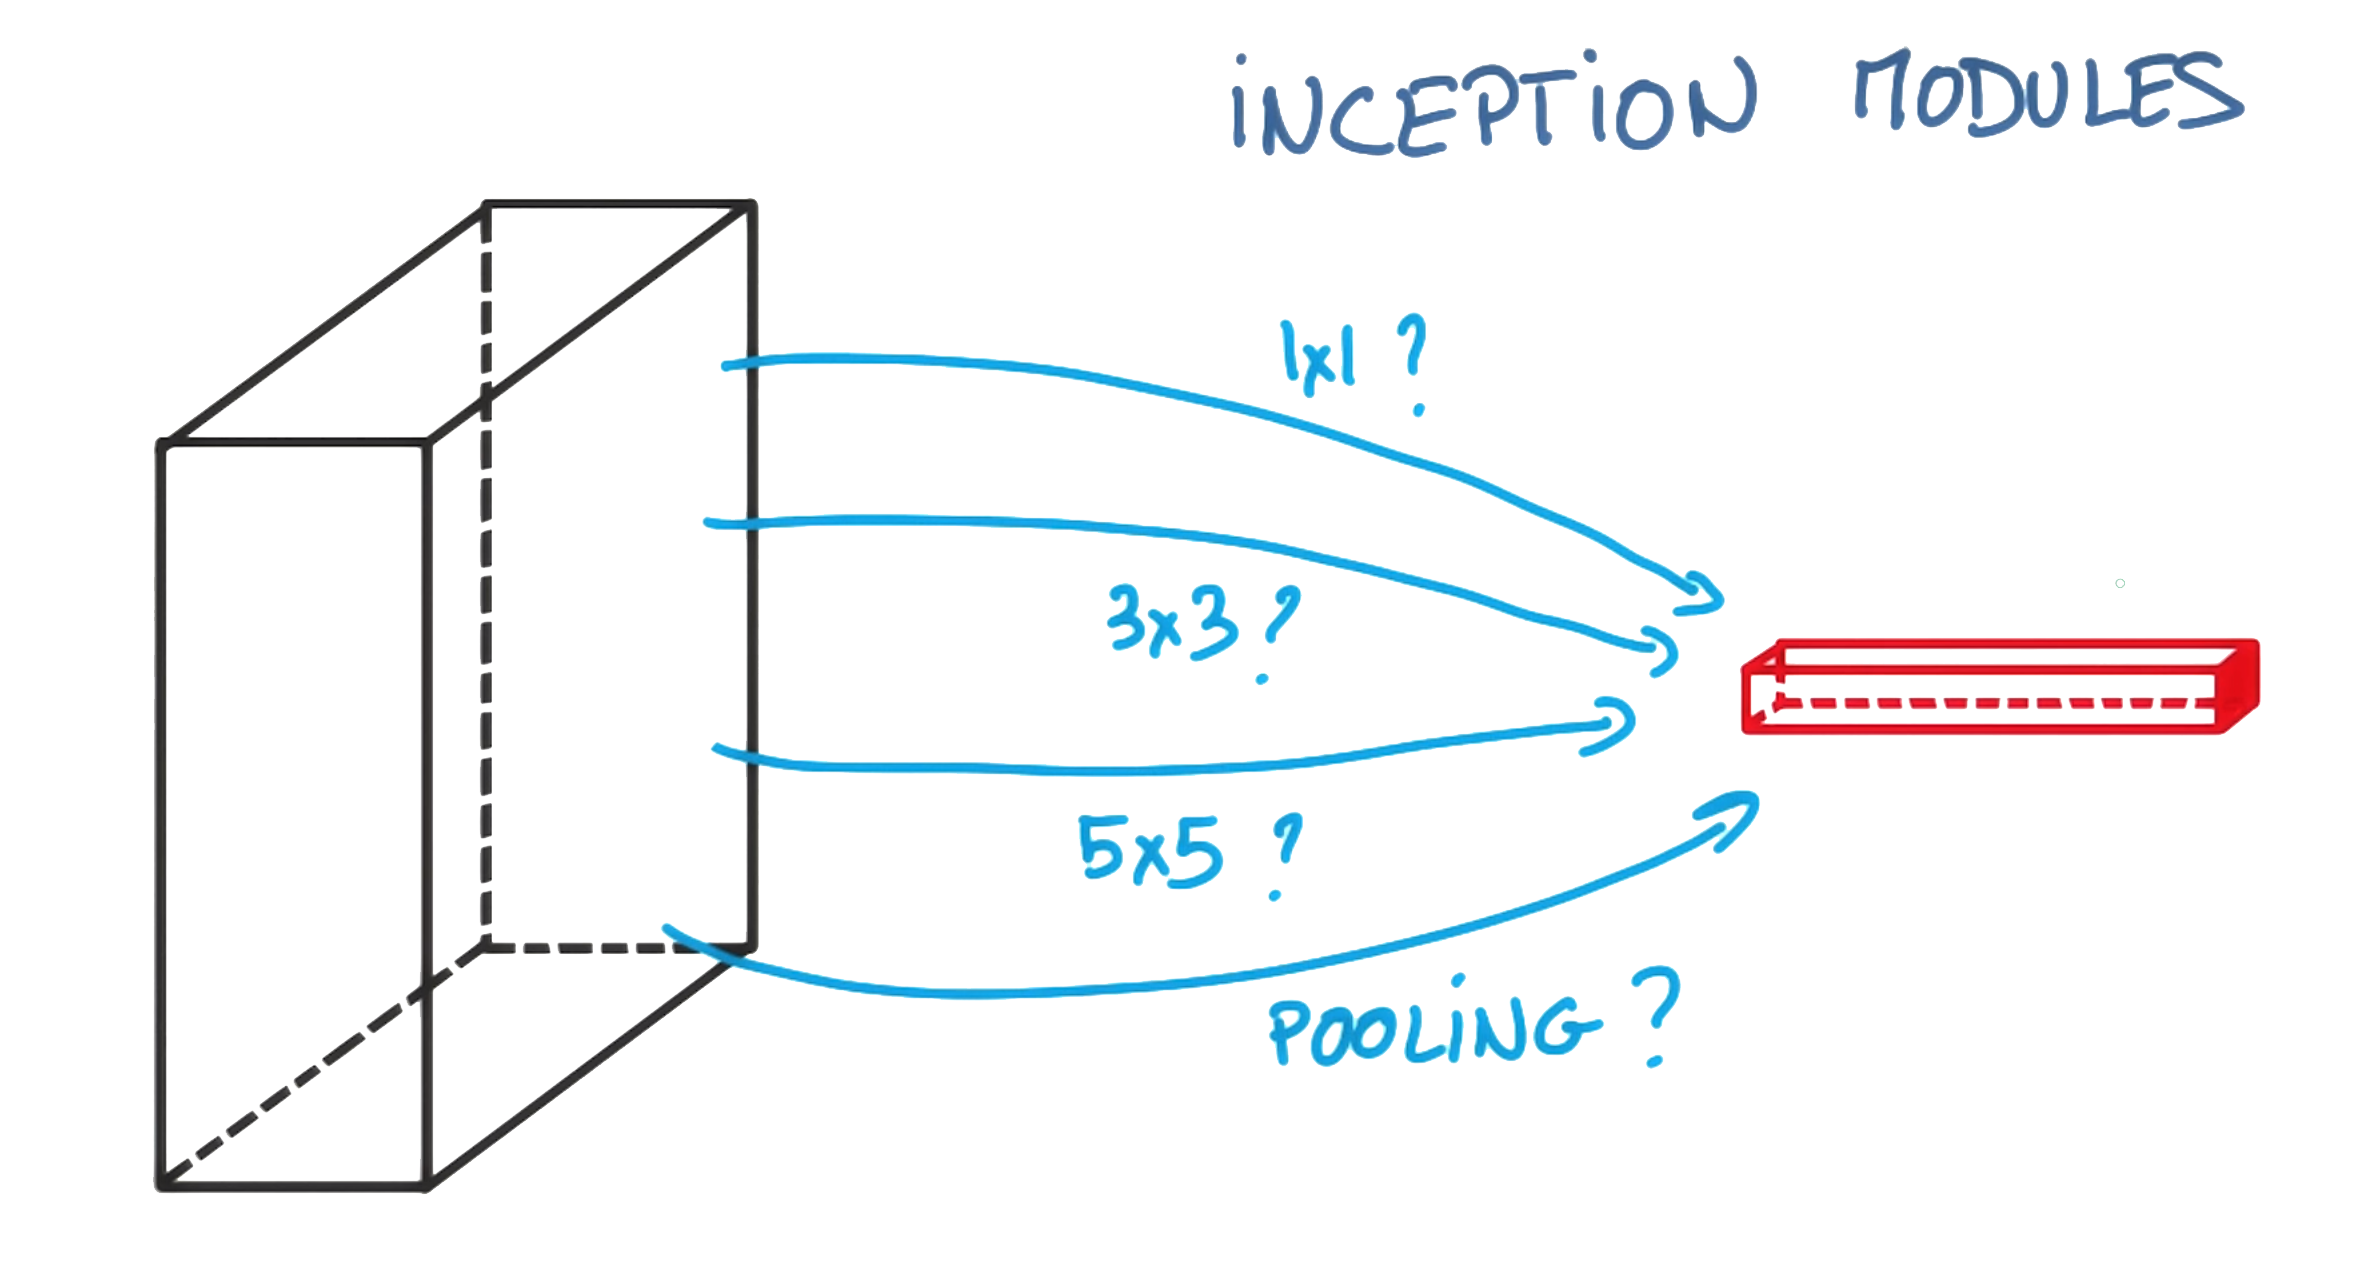 iNCEPTiON MODULES
1x1 ?
3x3 ?
5x5 ?
POOLiNG ?